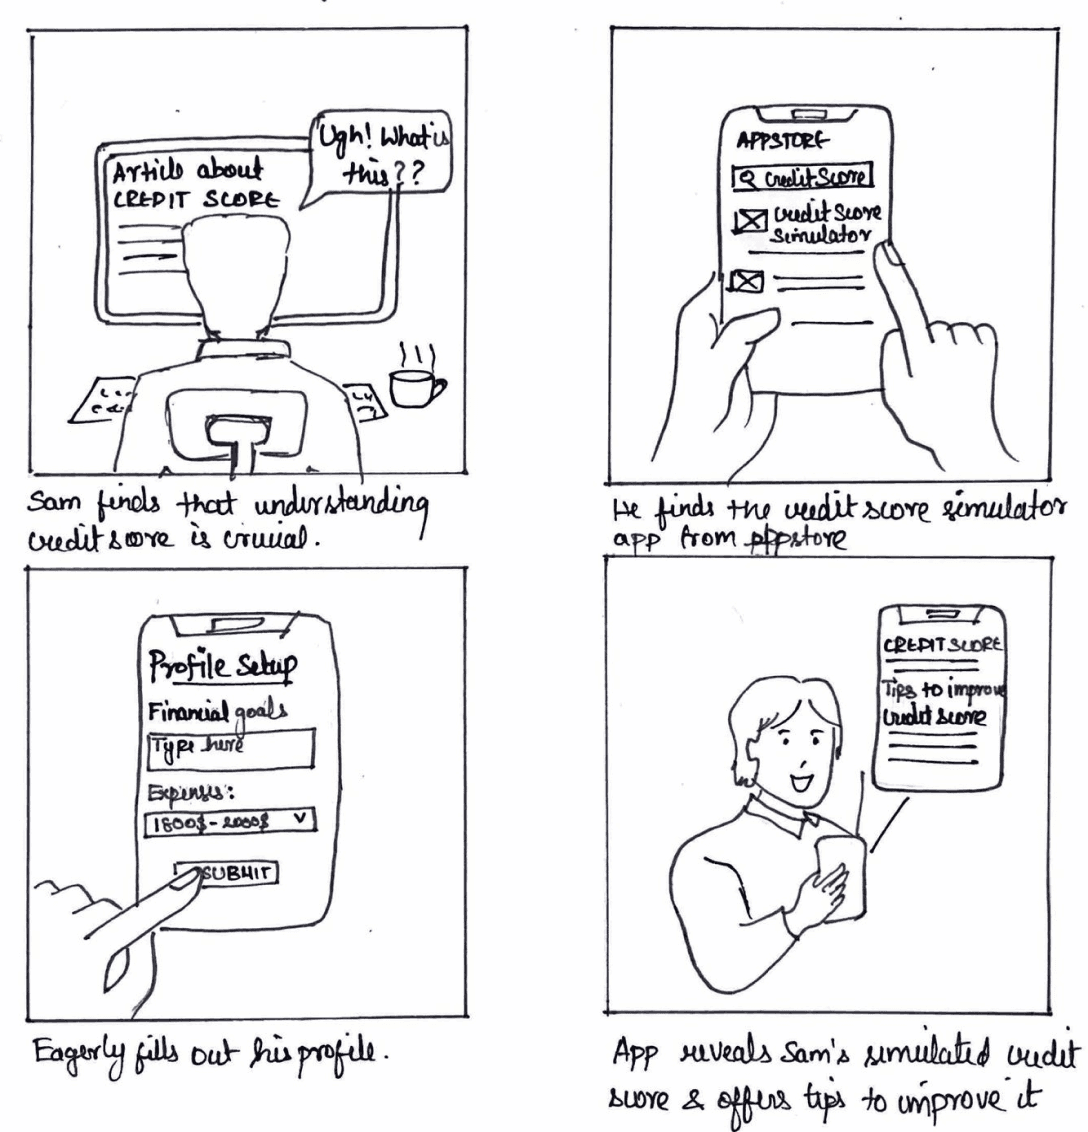 Article about
CREDIT SCORE
Ugh! What is
this??
Sam finds that understanding
credit score is crucial.
APPSTORE
Credit Score
Credit Score
Simulator
He finds the credit score simulator
app from Appstore
Profile Setup
Financial goals
Type here
Expenses:
1800$-2000$
SUBMIT
Eagerly fills out his profile.
CREDIT SCORE
Tips to improve
credit score
App reveals Sam's simulated credit
score & offers tips to improve it